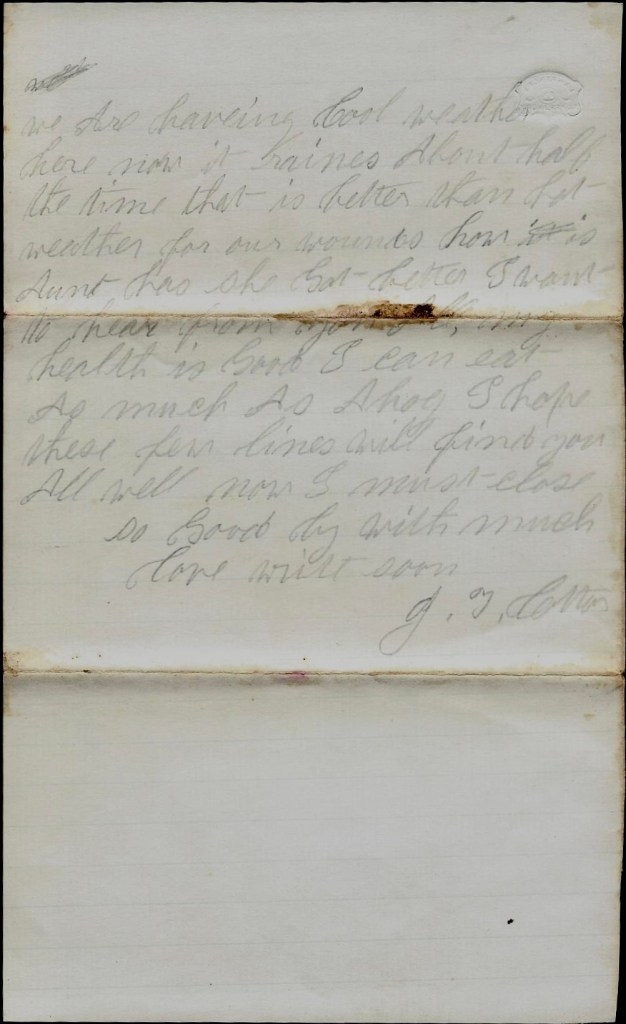 we Are haveing Cool weather
here now it raines About half
the time that is better than hot
weather for our wounds how is
Aunt has she Got better I want
to hear from you All, my
health is Good I can eat
As much As A hog I hope
these few lines will find you
All well now I must close
so Good by with much
love write soon
J. T. Cotton